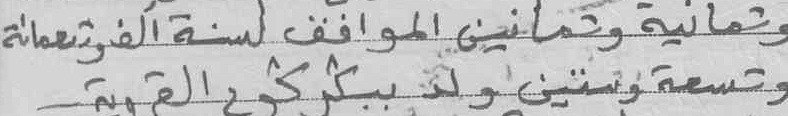 وثمانية وثمانين الموافق لسنة ألف وتسعمائة
وتسعة وستين ولد ب القروية